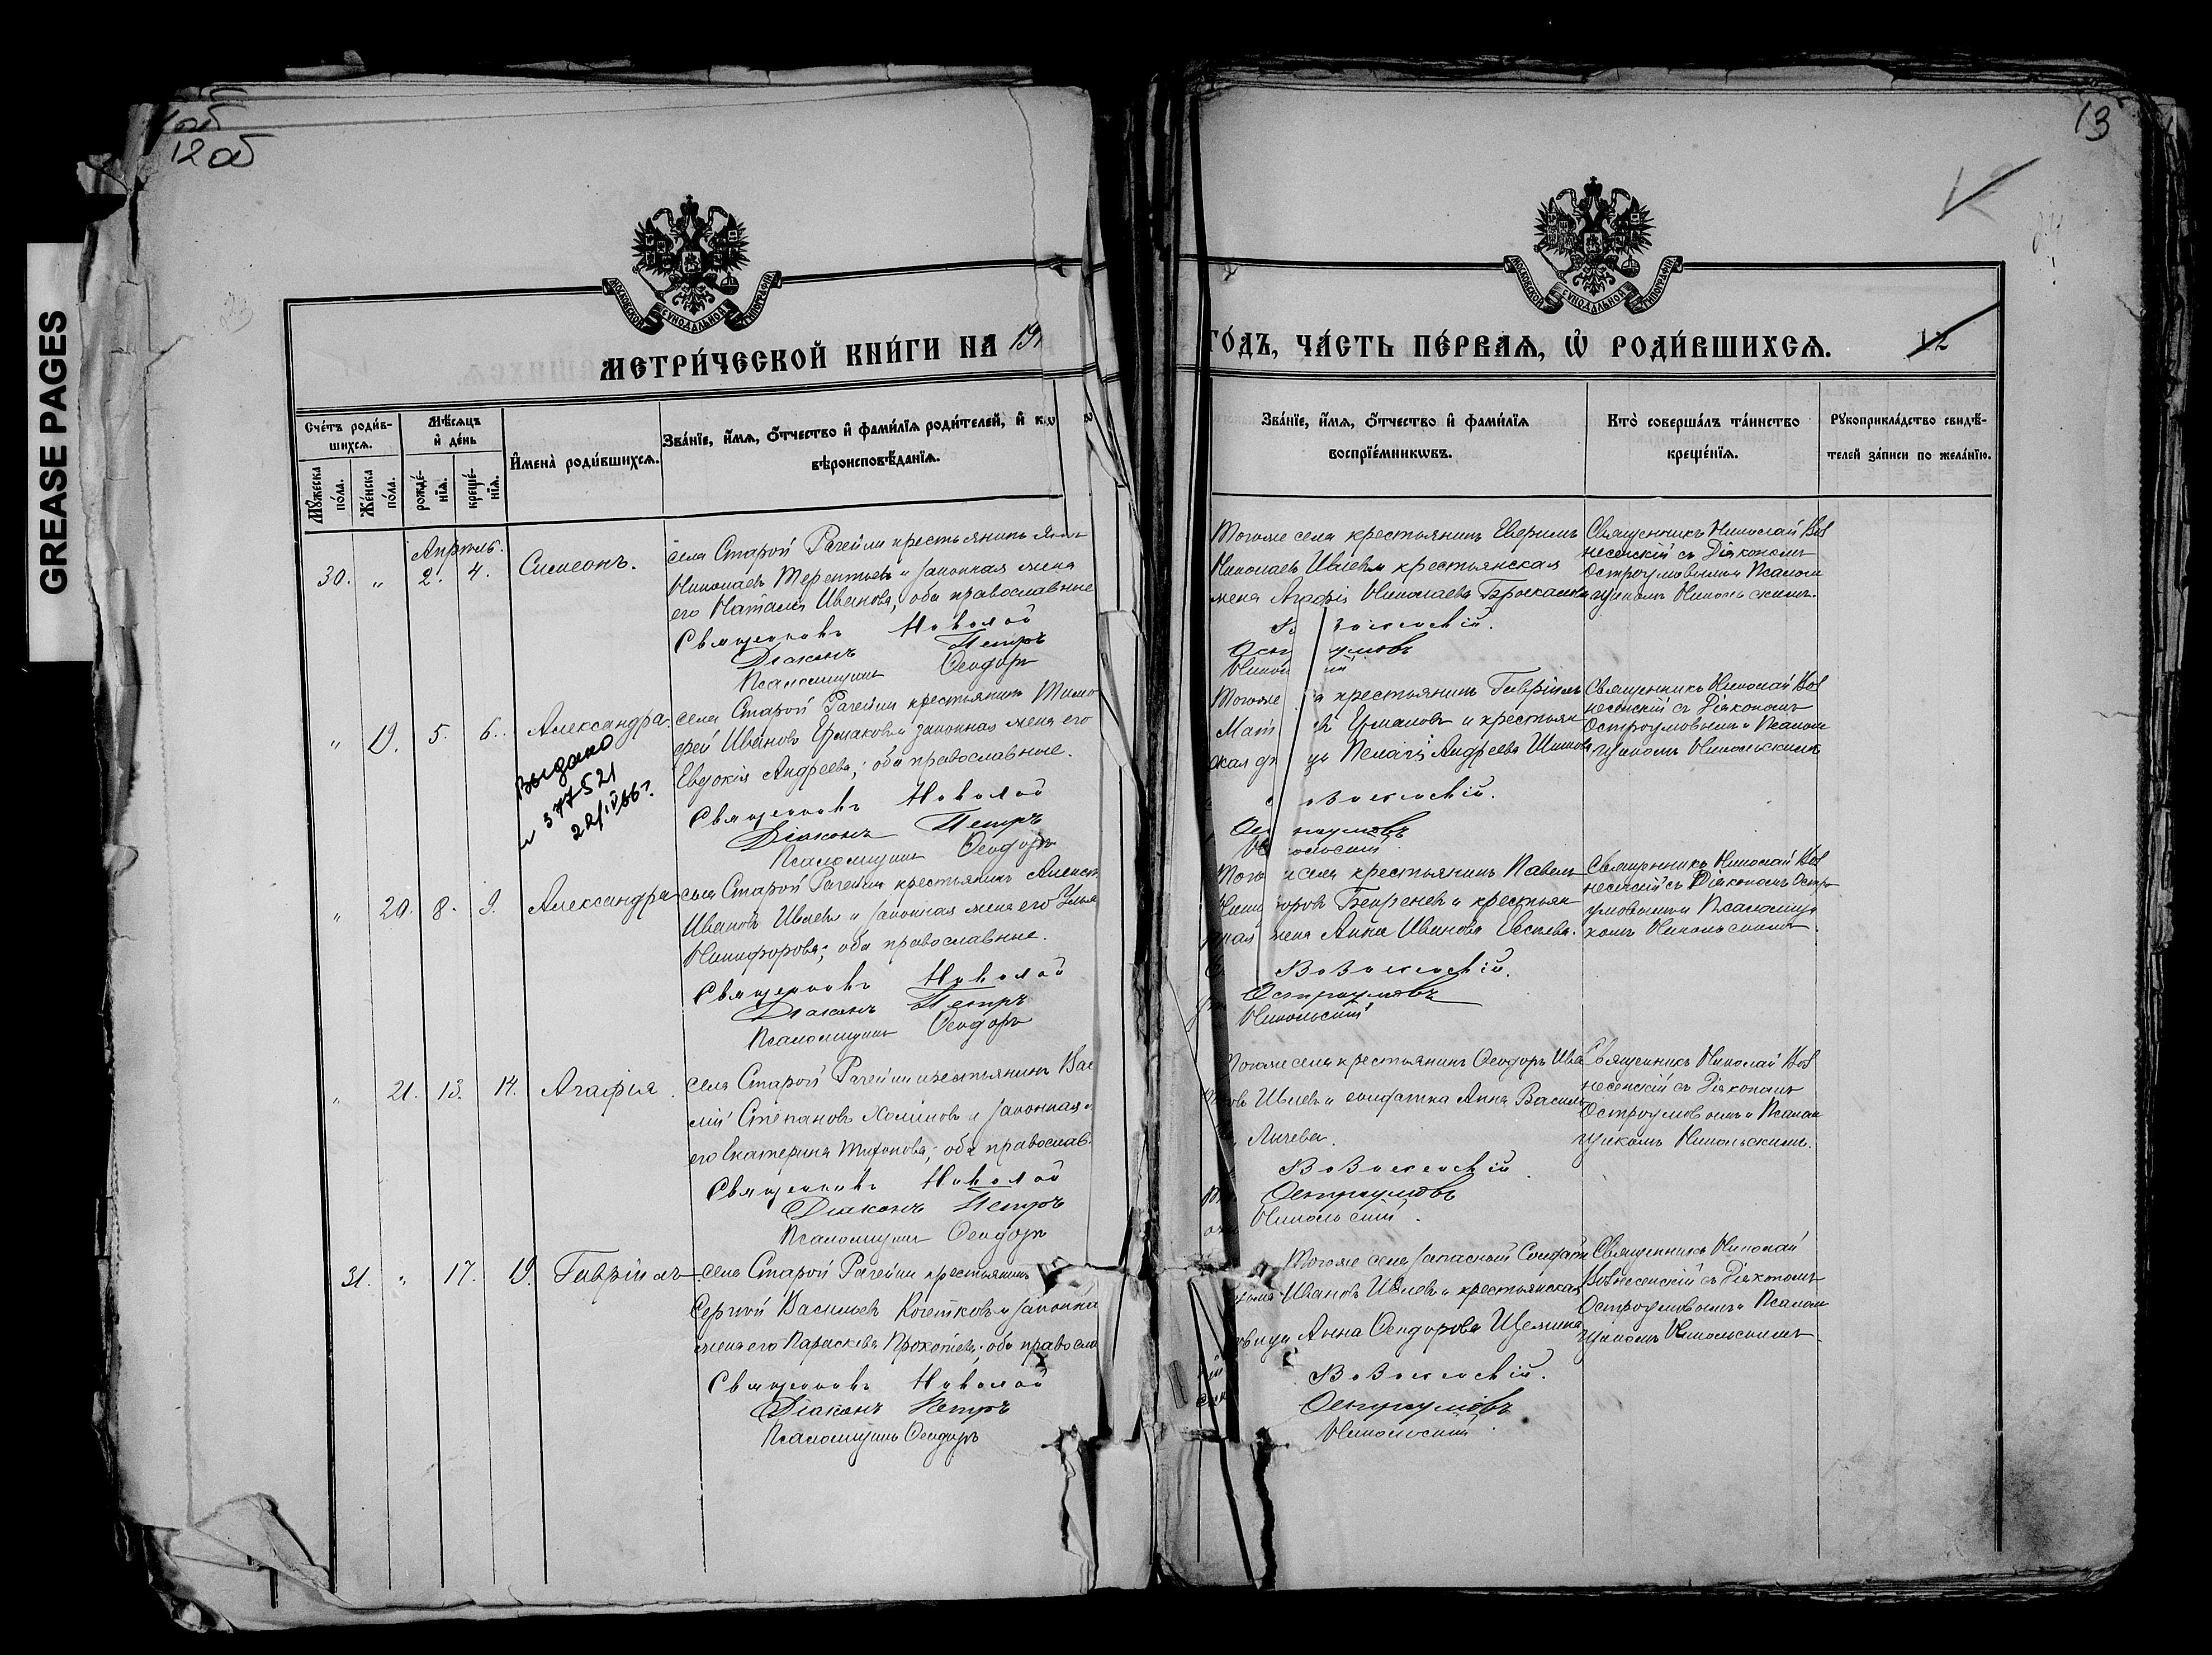 12 об
13
GREASE PAGES
МОСКОВСКОЙ СѴНОДАЛЬНОЙ ТИПОГРАФІИ
МОСКОВСКОЙ СѴНОДАЛЬНОЙ ТИПОГРАФІИ
МЕТРИ́ЧЕСКОЙ КНИ́ГИ НА 19
ГО́ДЪ, ЧА́СТЬ ПЕ́РВАѦ, Ѡ҆ РОДИ́ВШИХСѦ.
12
Сче́тъ роди́в-
шихсѧ.
Мꙋ́жеска по́ла.
Же́нска по́ла.
Мѣ́сѧцъ и҆ де́нь
рожде́-нїѧ.
креще́-нїѧ.
И҆мена̀ роди́вшихсѧ.
Зва́нїе, и҆́мѧ, ѻ҆́тчество и҆ фами́лїѧ роди́телей, и҆ ка
вѣроисповѣ́данїѧ.
Зва́нїе, и҆́мѧ, ѻ҆́тчество и҆ фами́лїѧ
воспрїе́мникѡвъ.
Кто̀ соверша́лъ та́инство
креще́нїѧ.
Рꙋкоприкла́дство свидѣ́-
телей за́писи по жела́нїю.
Апрѣль.
30. " 2. 4. Симеонъ.
села Старой Рачейки крестьянинъ
Николаевъ Терентьевъ и законная жена
его Наталія Иванова, оба православные
Священникъ Николай
Діаконъ Петръ
Псаломщикъ Ѳеодоръ
Тогоже села крестьянинъ
Николаевъ Ивлевъ и крестьянская
жена Агафія Николаева
Вознесенскій.
Остроумовъ
Никольскій
Священникъ Николай Воз
несенскій съ Діакономъ
Остроумовымъ и Псалом
щикомъ Никольскимъ.
" 19. 5. 6. Александра.
Выдано
377521
22/IV 66 г.
села Старой Рачейки крестьянинъ Тимо
фей Ивановъ Ермаковъ и законная жена его
Евдокія Андреева; оба православные.
Священникъ Николай
Діаконъ Петръ
Псаломщикъ Ѳеодоръ
Тогоже крестьянинъ Гавріилъ
Ермаковъ и крестьян
ская Пелагія Андреева
Вознесенскій.
Остроумовъ
Никольскій
Священникъ Николай Воз
несенскій съ Діакономъ
Остроумовымъ и Псалом
щикомъ Никольскимъ
" 20. 8. 9. Александра
села Старой Рачейки крестьянинъ Алексѣй
Ивановъ Ивлевъ и законная жена его
Никифорова; оба православные.
Священникъ Николай
Діаконъ Петръ
Псаломщикъ Ѳеодоръ
села крестьянинъ Павелъ
и крестьян
жена Анна Иванова
Вознесенскій.
Остроумовъ
Никольскій
Священникъ Николай Воз
несенскій съ Діакономъ Остро
умовымъ и Псаломщи
комъ Никольскимъ
" 21. 13. 14. Агафія.
села Старой Рачейки крестьянинъ Васи
лій Степановъ и законная
его Екатерина Тихонова; оба православ.
Священникъ Николай
Діаконъ Петръ
Псаломщикъ Ѳеодоръ
Тогоже села крестьянинъ Ѳеодоръ Ива
новъ Ивлевъ и солдатка Анна Василь
Вознесенскій
Остроумовъ
Никольскій.
Священникъ Николай Воз
несенскій съ Діакономъ
Остроумовымъ и Псалом
щикомъ Никольскимъ.
31. " 17. 19. Гавріилъ
села Старой Рачейки крестьянинъ
Сергѣй Васильевъ Кочетковъ и законна
жена его Параскева Прокопіева; оба правосла
Священникъ Николай
Діаконъ Петръ
Псаломщикъ Ѳеодоръ
Тогоже села запасный Солдатъ
Ивановъ Ивлевъ и крестьянская
Анна Ѳеодорова
Вознесенскій.
Остроумовъ
Никольскій
Священникъ Николай
Вознесенскій съ Діакономъ
Остроумовымъ и Псалом
щикомъ Никольскимъ